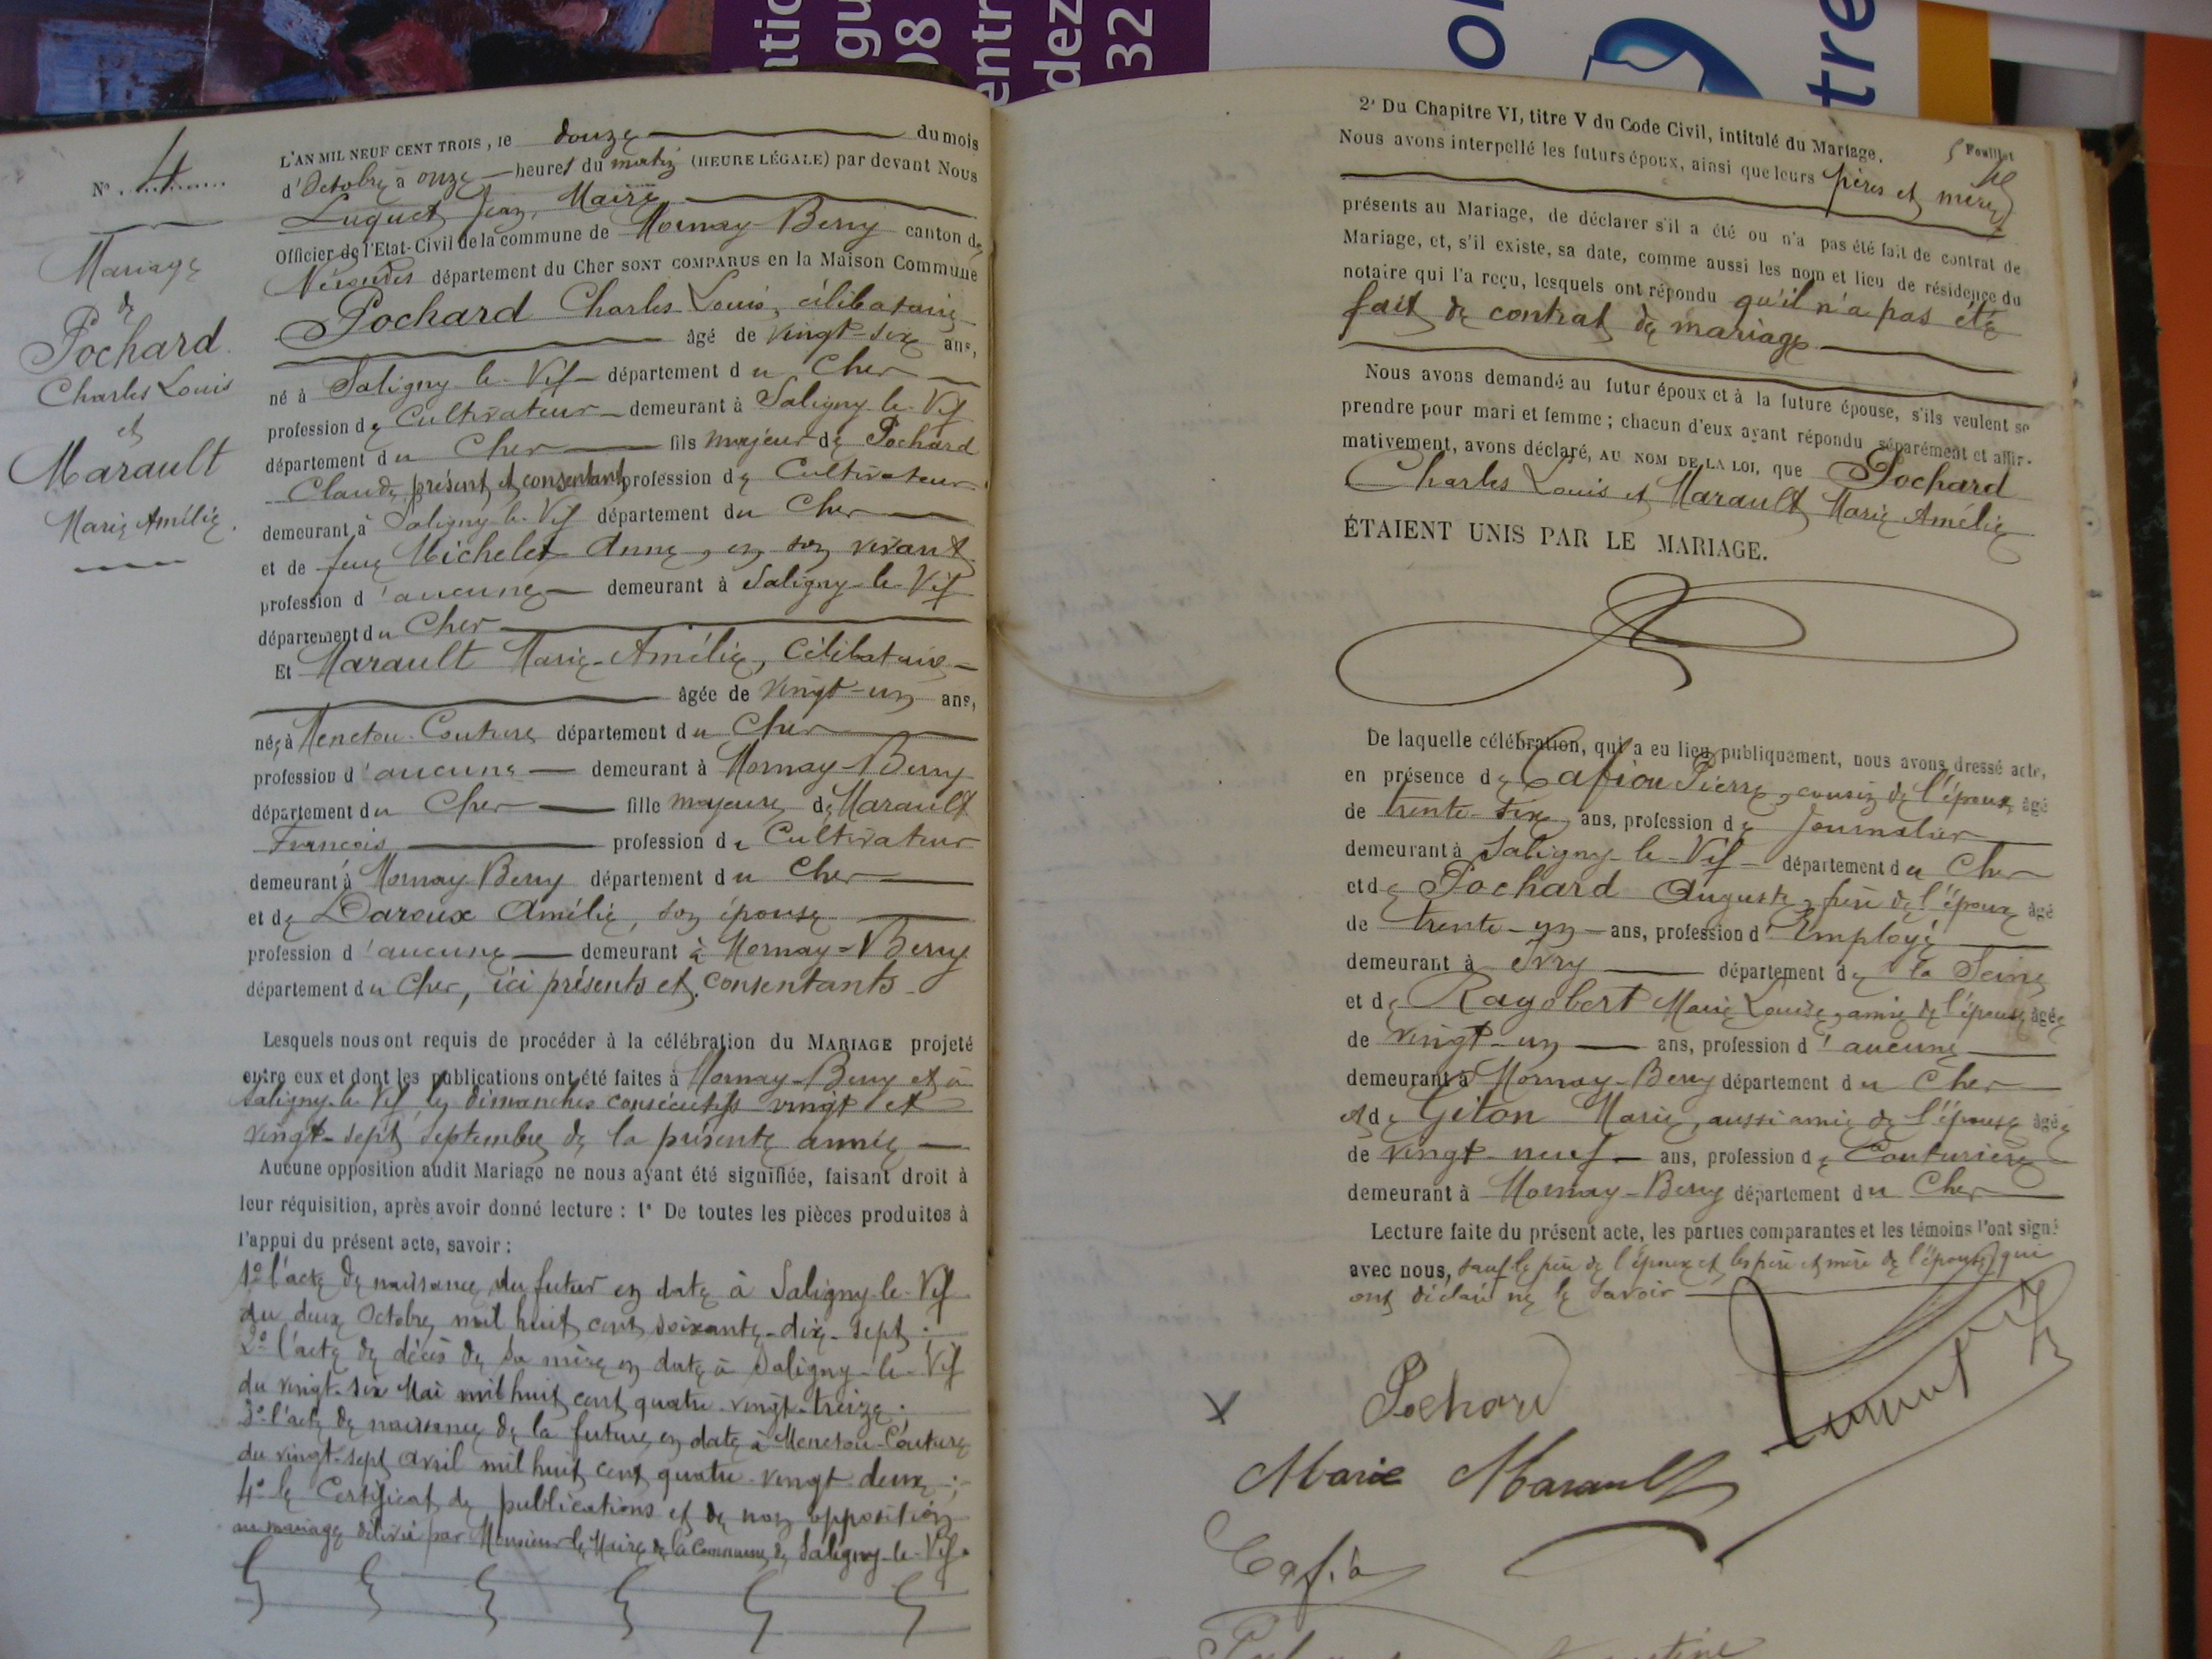 ntic
gu
08
entr
dez
32
tre
N° 4
Mariage
de
Pochard
Charles Louis
et
Marault
Marie Amélie.
L'AN MIL NEUF CENT TROIS, le douze du mois
d'Octobre à onze heures du matin (HEURE LÉGALE) par devant Nous
Luquet Jean, Maire
Officier de l'Etat-Civil de la commune de Mornay-Berry canton de
Nérondes département du Cher SONT COMPARUS en la Maison Commune
Pochard Charles Louis, célibataire
âgé de vingt-six ans,
né à Saligny-le-Vif département du Cher
profession de Cultivateur demeurant à Saligny-le-Vif
département du Cher fils majeur de Pochard
Claude, présent et consentant profession de Cultivateur
demeurant à Saligny-le-Vif département du Cher
et de feue Michelet Anne, en son vivant
profession d'aucune demeurant à Saligny-le-Vif
département du Cher
Et Marault Marie-Amélie, célibataire
âgée de vingt-un ans,
née à Menetou-Couture département du Cher
profession d'aucune demeurant à Mornay-Berry
département du Cher fille majeure de Marault
François profession de Cultivateur
demeurant à Mornay-Berry département du Cher
et de Daroux Amélie, son épouse
profession d'aucune demeurant à Mornay-Berry
département du Cher, ici présents et consentants
Lesquels nous ont requis de procéder à la célébration du MARIAGE projeté
entre eux et dont les publications ont été faites à Mornay-Berry et à
Saligny-le-Vif les dimanches consécutifs vingt et
vingt-sept septembre de la présente année
Aucune opposition audit Mariage ne nous ayant été signifiée, faisant droit à
leur réquisition, après avoir donné lecture : 1° De toutes les pièces produites à
l'appui du présent acte, savoir :
1° l'acte de naissance du futur en date à Saligny-le-Vif
du deux Octobre mil huit cent soixante-dix-sept ;
2° l'acte de décès de sa mère en date à Saligny-le-Vif
du vingt-six Mai mil huit cent quatre-vingt-treize ;
3° l'acte de naissance de la future en date à Menetou-Couture
du vingt-sept avril mil huit cent quatre-vingt-deux ;
4° le Certificat de publications et de non opposition
au mariage délivré par Monsieur le Maire de la Commune de Saligny-le-Vif.
Feuillet
2° Du Chapitre VI, titre V du Code Civil, intitulé du Mariage.
Nous avons interpellé les futurs époux, ainsi que leurs pères et mère
présents au Mariage, de déclarer s'il a été ou n'a pas été fait de contrat de
Mariage, et, s'il existe, sa date, comme aussi les nom et lieu de résidence du
notaire qui l'a reçu, lesquels ont répondu qu'il n'a pas été
fait de contrat de mariage
Nous avons demandé au futur époux et à la future épouse, s'ils veulent se
prendre pour mari et femme ; chacun d'eux ayant répondu séparément et affir-
mativement, avons déclaré, AU NOM DE LA LOI, que Pochard
Charles Louis et Marault Marie Amélie
ÉTAIENT UNIS PAR LE MARIAGE.
De laquelle célébration, qui a eu lieu publiquement, nous avons dressé acte,
en présence de Cafiou Pierre, cousin de l'époux, âgé
de trente-six ans, profession de Journalier
demeurant à Saligny-le-Vif département du Cher
et de Pochard Auguste, frère de l'époux, âgé
de trente-un ans, profession d'Employé
demeurant à Ivry département de la Seine
et de Ragobert Marie Louise, amie de l'épouse, âgée
de vingt-un ans, profession d'aucune
demeurant à Mornay-Berry département du Cher
et de Giton Marie, aussi amie de l'épouse âgée
de vingt-neuf ans, profession de Couturière
demeurant à Mornay-Berry département du Cher
Lecture faite du présent acte, les parties comparantes et les témoins l'ont signé
avec nous, sauf le père de l'époux et les père et mère de l'épouse, qui
ont déclaré ne le savoir
Pochard
Marie Marault